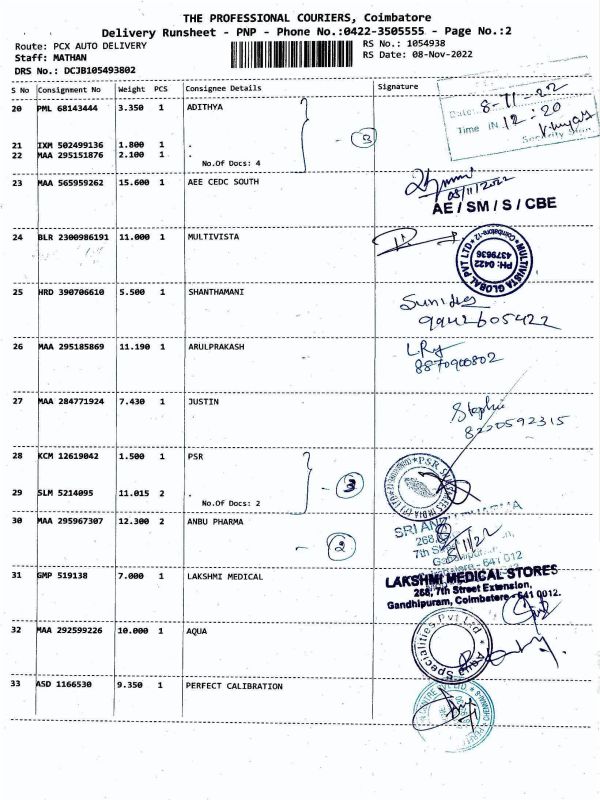 THE PROFESSIONAL COURIERS, Coimbatore
Delivery Runsheet - PNP - Phone No.:0422-3505555 - Page No.:2
Route: PCX AUTO DELIVERY RS No.: 1054938
Staff: MATHAN RS Date: 08-Nov-2022
DRS No.: DCJB105493802
S No Consignment No Weight PCS Consignee Details Signature
Date: 8-11-22
Time IN 12:20
20 PML 68143444 3.350 1 ADITHYA
21 IXM 502499136 1.800 1 .
3
22 MAA 295151876 2.100 1 .
No.Of Docs: 4
23 MAA 565959262 15.600 1 AEE CEDC SOUTH
08/11/2022
AE / SM / S / CBE
24 BLR 2300986191 11.000 1 MULTIVISTA
MULTIVISTA GLOBAL PVT LTD * Coimbatore-12 *
PH: 0422
4379636
25 HRD 390706610 5.500 1 SHANTHAMANI
9942605422
26 MAA 295185869 11.190 1 ARULPRAKASH
8870900802
27 MAA 284771924 7.430 1 JUSTIN
8220592315
28 KCM 12619042 1.500 1 PSR
29 SLM 5214095 11.015 2 .
3
No.Of Docs: 2
30 MAA 295967307 12.300 2 ANBU PHARMA
2
8/11/22
31 GMP 519138 7.000 1 LAKSHMI MEDICAL
LAKSHMI MEDICAL STORES
268, 7th Street Extension,
Gandhipuram, Coimbatore - 641 0012.
32 MAA 292599226 10.000 1 AQUA
Aqua Specialities Pvt Ltd
33 ASD 1166530 9.350 1 PERFECT CALIBRATION